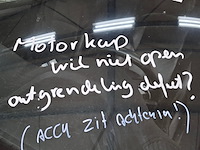 Motorkap
wil niet open
ontgrendeling defect?
(ACCU zit achterin!)